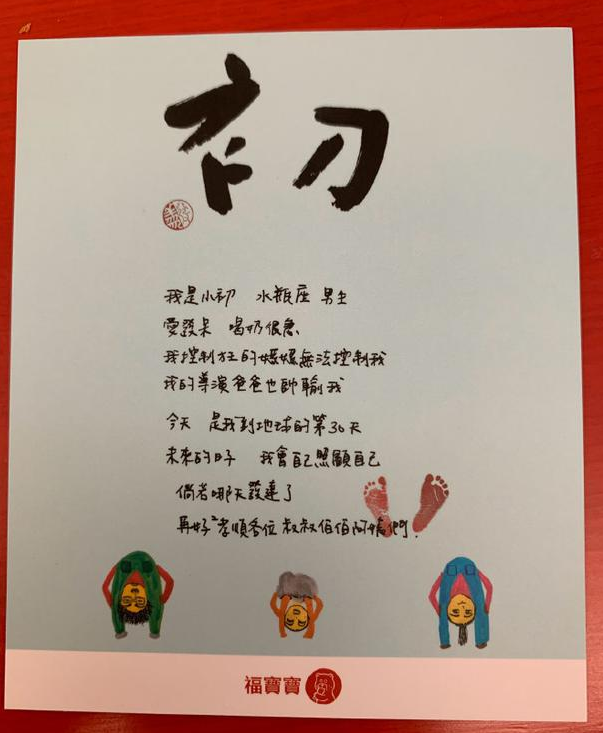 初
我是小初 水瓶座 男生
愛發呆 喝奶很急
我控制狂的媽媽無法控制我
我的導演爸爸也帥輸我
今天 是我到地球的第30天
未來的日子 我會自己照顧自己
倘若哪天發達了
再好好孝順各位叔叔伯伯阿姨們!
福寶寶